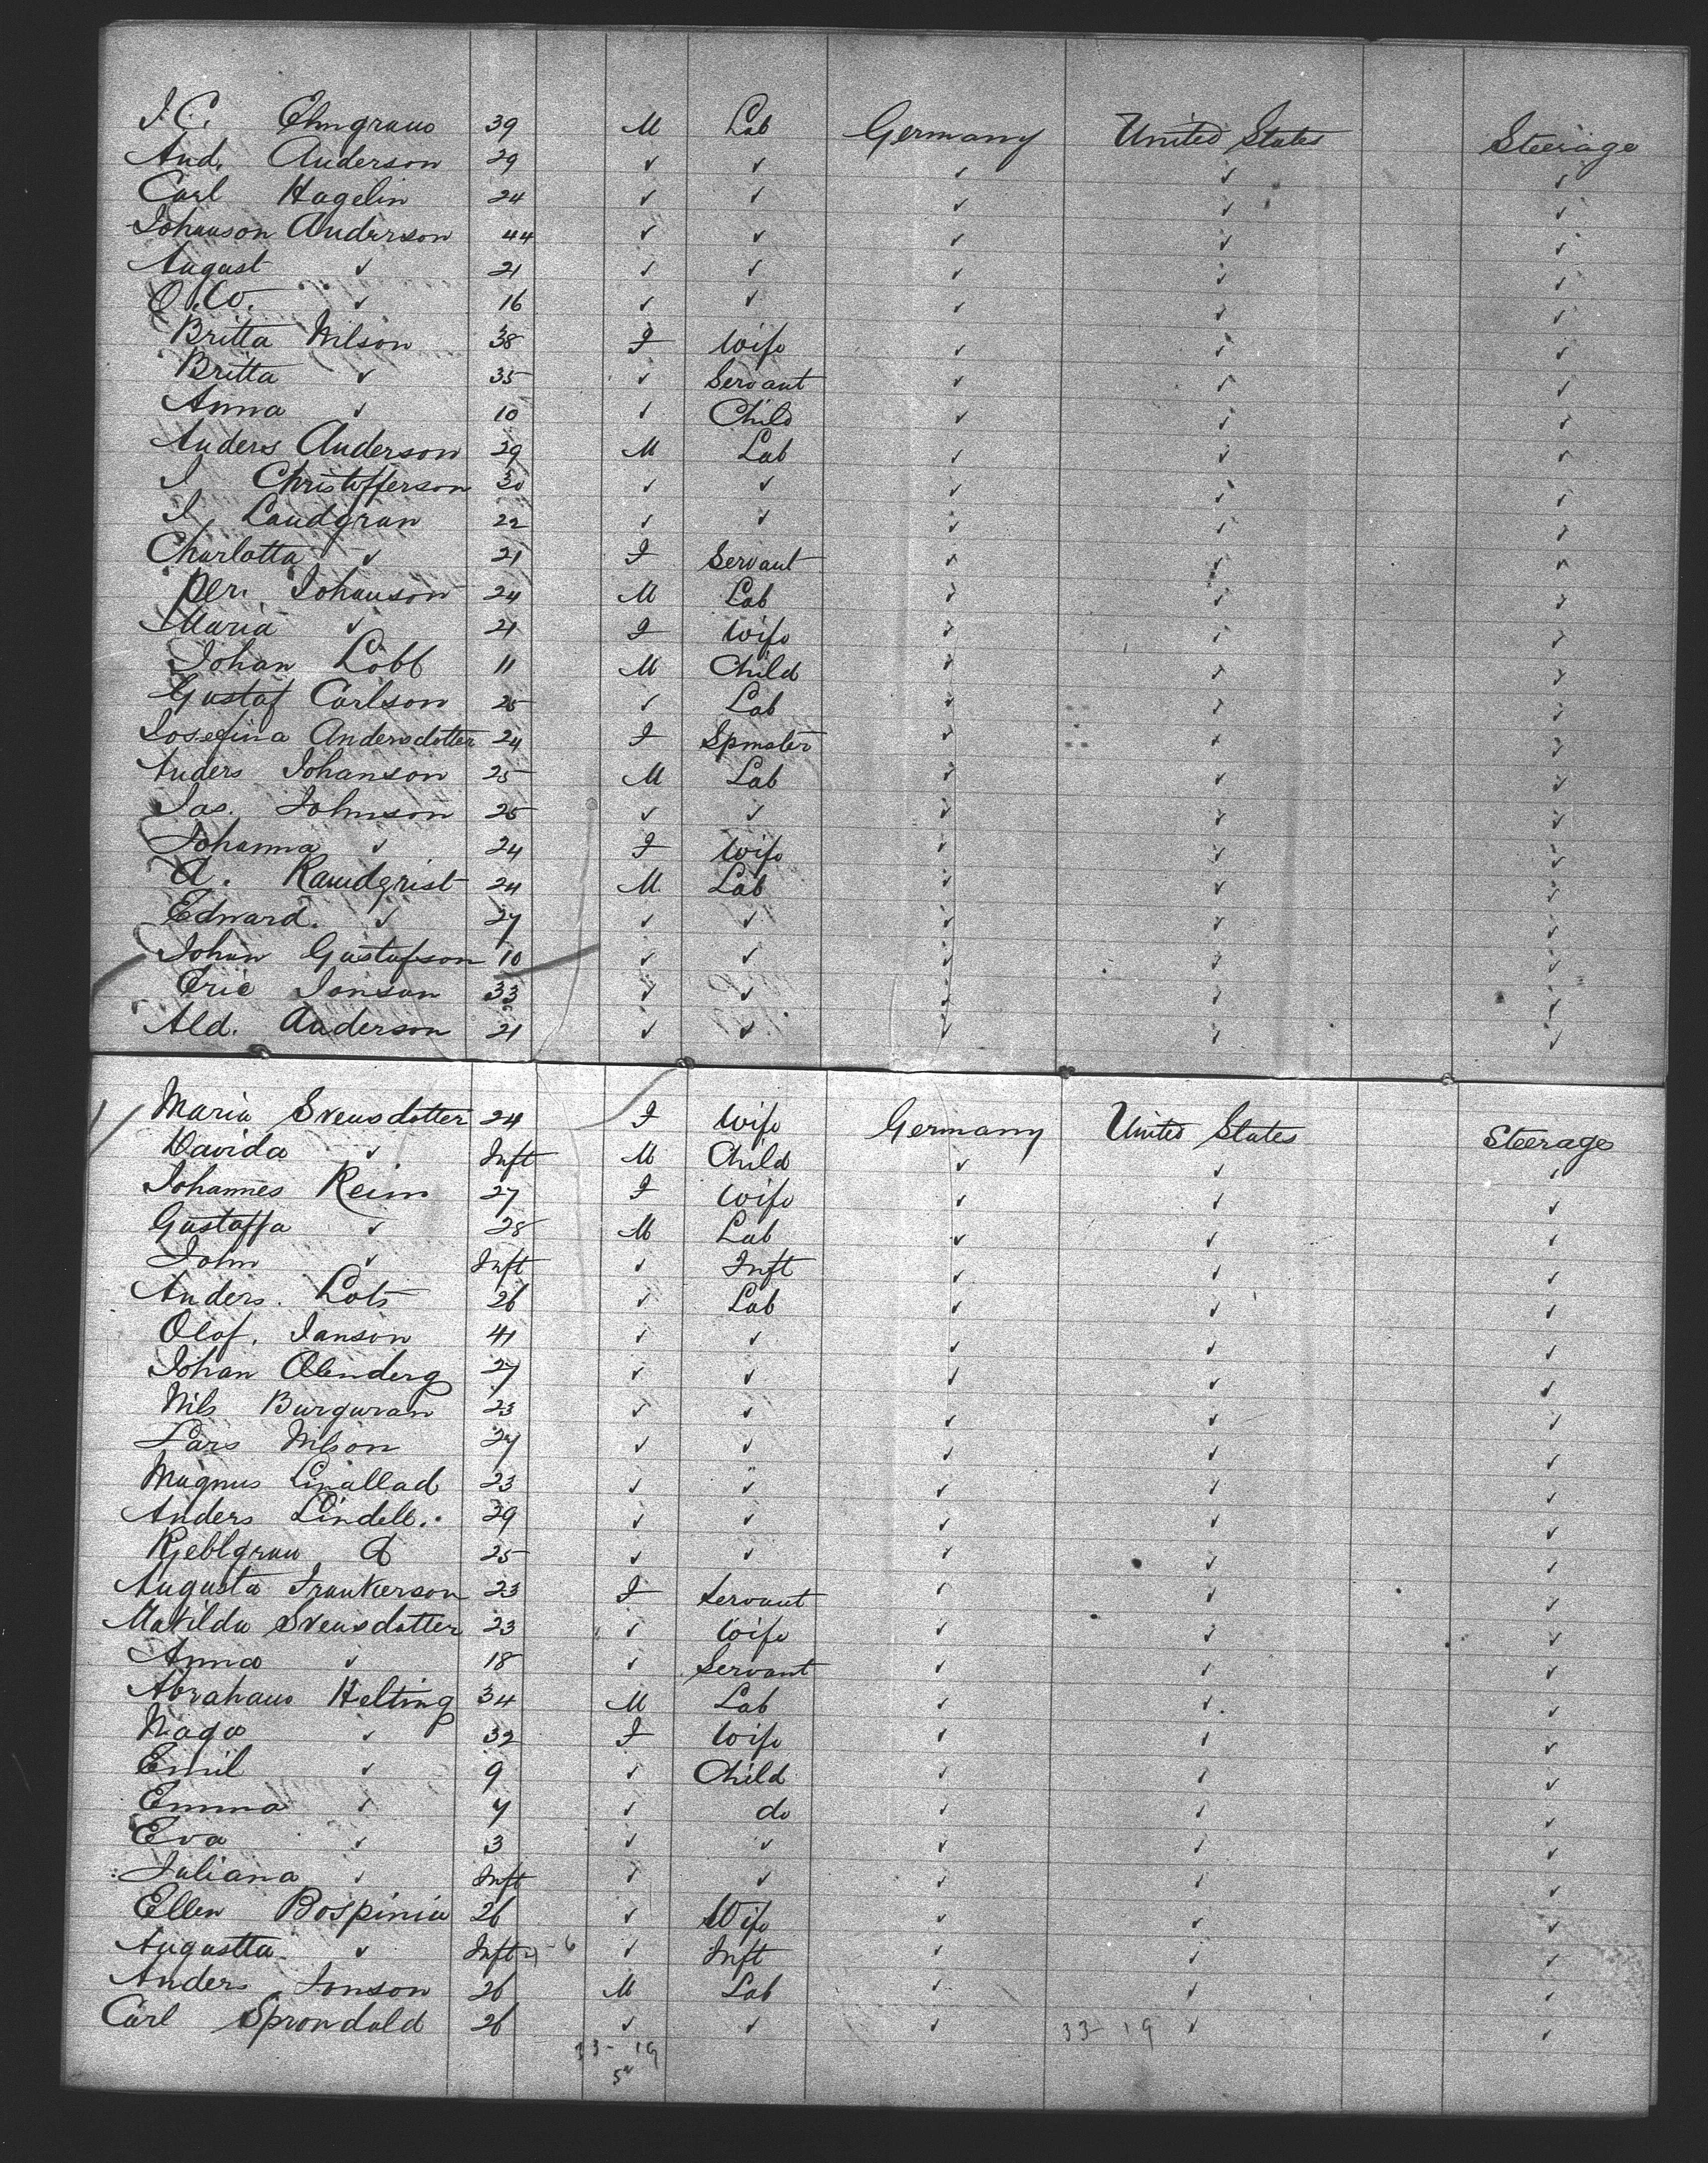 J. C. Ehngraus 39 M Lab Germany United States Steerage
And. Anderson 29 ✓ ✓ ✓ ✓ ✓
Carl Hagelin 24 ✓ ✓ ✓ ✓ ✓
Johanson Anderson 44 ✓ ✓ ✓ ✓ ✓
August ✓ 21 ✓ ✓ ✓ ✓ ✓
✓ 16 ✓ ✓ ✓ ✓ ✓
Britta Nilson 38 F Wife ✓ ✓ ✓
Britta ✓ 35 ✓ Servant ✓ ✓ ✓
Anna ✓ 10 ✓ Child ✓ ✓ ✓
Anders Anderson 29 M Lab ✓ ✓ ✓
J Christofferson 30 ✓ ✓ ✓ ✓ ✓
J, Landgran 22 ✓ ✓ ✓ ✓ ✓
Charlotta ✓ 21 F Servant ✓ ✓ ✓
Per. Johanson 24 M Lab ✓ ✓ ✓
Maria ✓ 21 F Wife ✓ ✓ ✓
Johan Lobb 11 M Child ✓ ✓ ✓
Gustaf Carlson 25 ✓ Lab ✓ ✓ ✓
Josefina Andersdotter 24 F Spinster ✓ ✓ ✓
Anders Johanson 25 M Lab ✓ ✓ ✓
Jas. Johnson 25 ✓ ✓ ✓ ✓ ✓
Johanna ✓ 24 F Wife ✓ ✓ ✓
A. Ramdqrist 24 M Lab ✓ ✓ ✓
Edward. ✓ 27 ✓ ✓ ✓ ✓ ✓
Johan Gustafson 10 ✓ ✓ ✓ ✓ ✓
Eric Jonson 33 ✓ ✓ ✓ ✓ ✓
Ald. Anderson 21 ✓ ✓ ✓ ✓ ✓
Maria Svensdotter 24 F Wife Germany United States Steerage
Davida ✓ Inft M Child ✓ ✓ ✓
Johannes Reim 27 F Wife ✓ ✓ ✓
Gustaffa ✓ 28 M Lab ✓ ✓ ✓
John ✓ Inft ✓ Inft ✓ ✓ ✓
Anders. Lots 26 ✓ Lab ✓ ✓ ✓
Olof. Janson 41 ✓ ✓ ✓ ✓ ✓
Johan Olenderg 27 ✓ ✓ ✓ ✓ ✓
Nils Burguran 23 ✓ ✓ ✓ ✓ ✓
Lars Nilson 27 ✓ ✓ ✓ ✓ ✓
Magnus Linallad 23 ✓ ✓ ✓ ✓ ✓
Anders Lindell. 29 ✓ ✓ ✓ ✓ ✓
Kjeblgran A 25 ✓ ✓ ✓ ✓ ✓
Augusta Frankerson 23 F Servant ✓ ✓ ✓
Matilda Svensdotter 23 ✓ Wife ✓ ✓ ✓
Anna ✓ 18 ✓ Servant ✓ ✓ ✓
Abraham Helting 34 M Lab ✓ ✓ ✓
Naga ✓ 32 F Wife ✓ ✓ ✓
Emil ✓ 9 ✓ Child ✓ ✓ ✓
Emma ✓ 7 ✓ do ✓ ✓ ✓
Eva ✓ 3 ✓ ✓ ✓ ✓ ✓
Juliana ✓ Inft ✓ ✓ ✓ ✓ ✓
Ellen Bospinia 26 ✓ Wife ✓ ✓ ✓
Augustta ✓ Inft ✓ Inft ✓ ✓ ✓
Anders Jonson 26 M Lab ✓ ✓ ✓
Carl Sprondald 26 ✓ ✓ ✓ 33-19 ✓ ✓
33-19